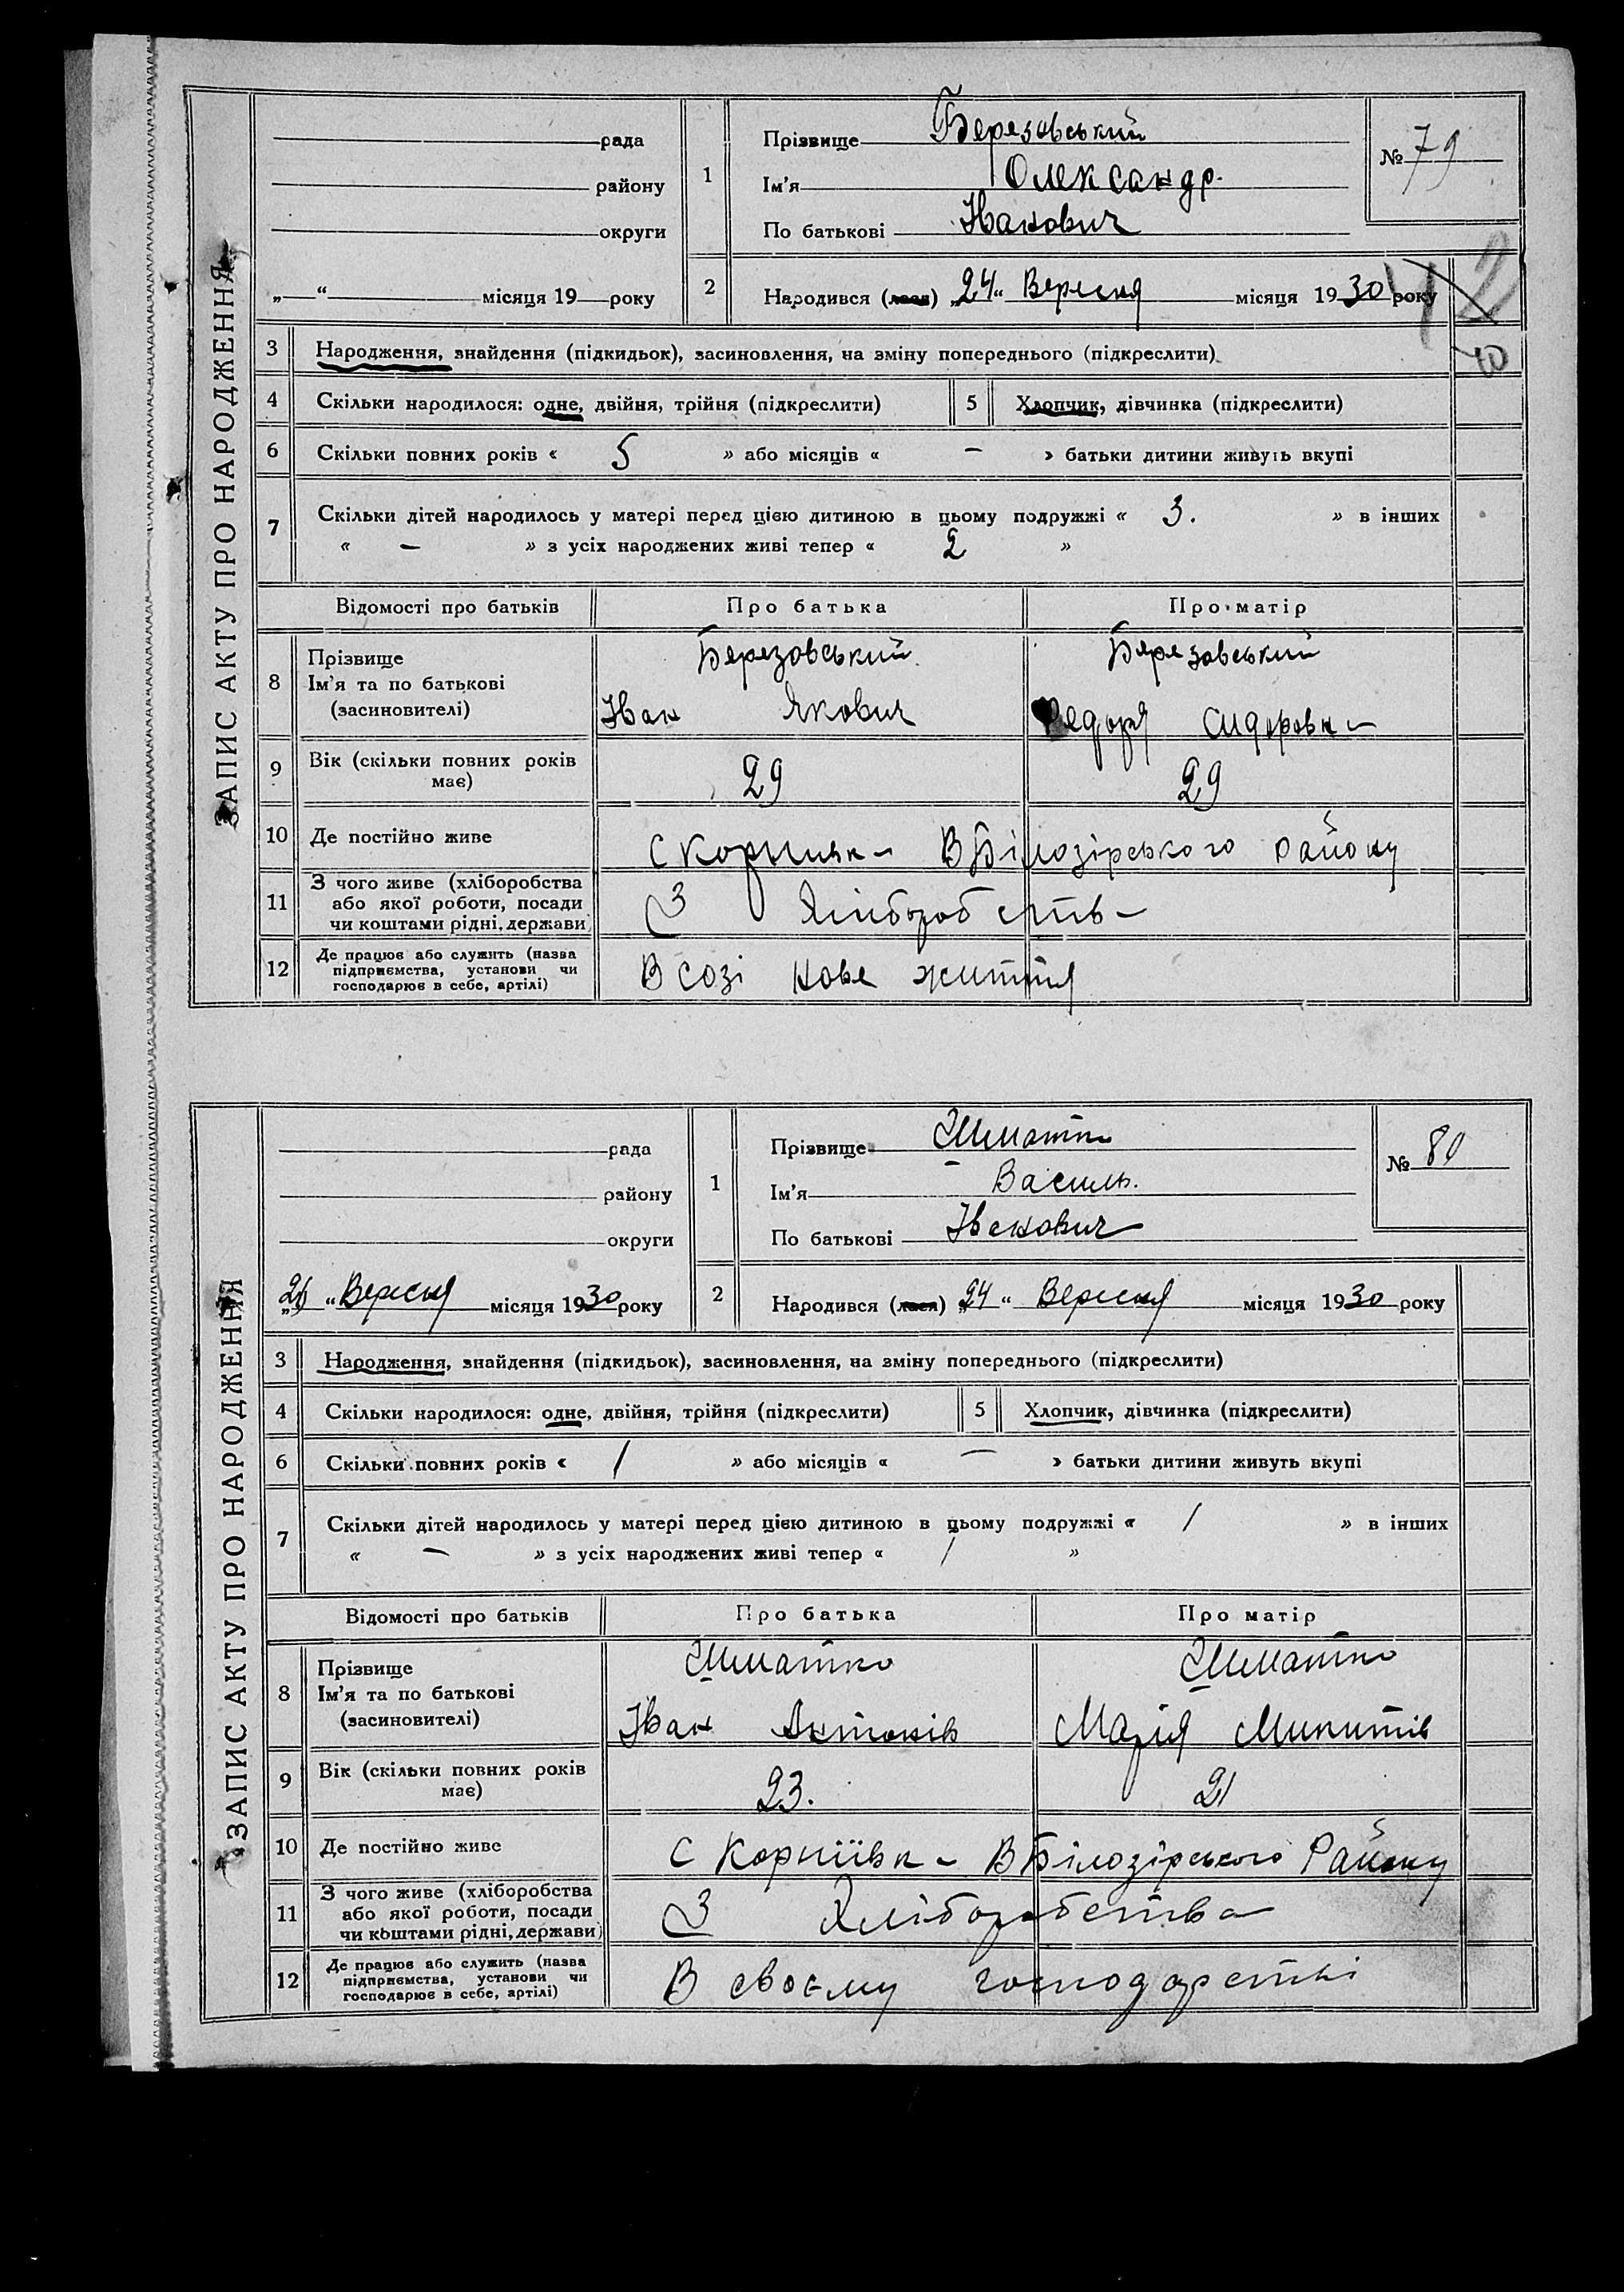 ЗАПИС АКТУ ПРО НАРОДЖЕННЯ
рада
району
округи
„ “ місяця 19 року
1 Прізвище Березовський
Ім'я Олександр.
По батькові Іванович
№ 79
2 Народився (лася) „24“ Вересня місяця 1930 року
3 Народження, знайдення (підкидьок), засиновлення, на зміну попереднього (підкреслити)
4 Скільки народилося: одне, двійня, трійня (підкреслити) 5 Хлопчик, дівчинка (підкреслити)
6 Скільки повних років « 5 » або місяців « — » батьки дитини живуть вкупі
7 Скільки дітей народилось у матері перед цією дитиною в цьому подружжі « 3. » в інших
« — » з усіх народжених живі тепер « 2 »
Відомості про батьків Про батька Про матір
8 Прізвище Березовський Березовський
Ім'я та по батькові
(засновителі) Іван Якович Сидоровна
9 Вік (скільки повних років має) 29 29
10 Де постійно живе С Корніівка В Білозірського району
11 З чого живе (хліборобства
або якої роботи, посади
чи коштами рідні, держави) З Хліборобства
12 Де працює або служить (назва
підприємства, установи чи
господарює в себе, артілі) В созі нове життя
ЗАПИС АКТУ ПРО НАРОДЖЕННЯ
рада
району
округи
„26“ Вересня місяця 1930 року
1 Прізвище Шматко
Ім'я Василь.
По батькові Іванович
№ 80
2 Народився (лася) „24“ Вересня місяця 1930 року
3 Народження, знайдення (підкидьок), засиновлення, на зміну попереднього (підкреслити)
4 Скільки народилося: одне, двійня, трійня (підкреслити) 5 Хлопчик, дівчинка (підкреслити)
6 Скільки повних років « 1 » або місяців « — » батьки дитини живуть вкупі
7 Скільки дітей народилось у матері перед цією дитиною в цьому подружжі « 1 » в інших
« — » з усіх народжених живі тепер « 1 »
Відомості про батьків Про батька Про матір
8 Прізвище Шматко Шматко
Ім'я та по батькові
(засиновителі) Іван Антонів Марія Микитів
9 Вік (скільки повних років має) 23. 21
10 Де постійно живе С Корніівка В Білозірського Району
11 З чого живе (хліборобства
або якої роботи, посади
чи коштами рідні, держави) З Хліборобства
12 Де працює або служить (назва
підприємства, установи чи
господарює в себе, артілі) В своєму господарстві